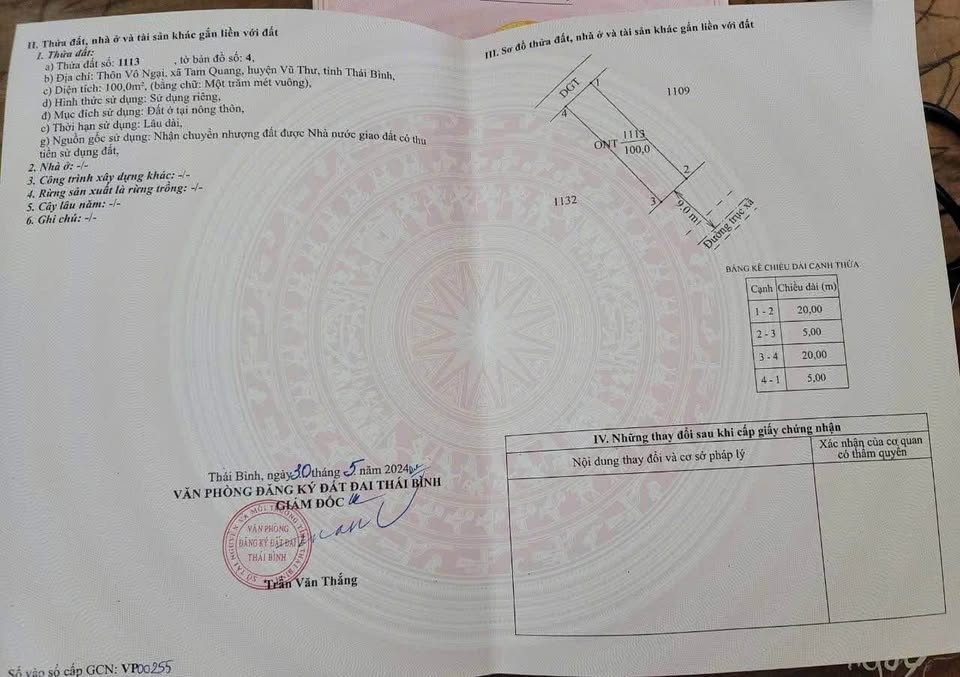 II. Thửa đất, nhà ở và tài sản khác gắn liền với đất
1. Thửa đất:
a) Thửa đất số: 1113 , tờ bản đồ số: 4,
b) Địa chỉ: Thôn Vô Ngại, xã Tam Quang, huyện Vũ Thư, tỉnh Thái Bình,
c) Diện tích: 100,0m², (bằng chữ: Một trăm mét vuông),
d) Hình thức sử dụng: Sử dụng riêng,
đ) Mục đích sử dụng: Đất ở tại nông thôn,
e) Thời hạn sử dụng: Lâu dài,
g) Nguồn gốc sử dụng: Nhận chuyển nhượng đất được Nhà nước giao đất có thu
tiền sử dụng đất,
2. Nhà ở: -/-
3. Công trình xây dựng khác: -/-
4. Rừng sản xuất là rừng trồng: -/-
5. Cây lâu năm: -/-
6. Ghi chú: -/-
Thái Bình, ngày 30 tháng 5 năm 2024
VĂN PHÒNG ĐĂNG KÝ ĐẤT ĐAI THÁI BÌNH
GIÁM ĐỐC
VĂN PHÒNG
ĐĂNG KÝ ĐẤT ĐAI
THÁI BÌNH
Trần Văn Thắng
Số vào sổ cấp GCN: VP00255
III. Sơ đồ thửa đất, nhà ở và tài sản khác gắn liền với đất
DGT
1
4
1109
ONT 1113
100,0
2
3
1132
9.0 m
Đường trục xã
BẢNG KÊ CHIỀU DÀI CẠNH THỬA
Cạnh Chiều dài (m)
1 - 2 20,00
2 - 3 5,00
3 - 4 20,00
4 - 1 5,00
IV. Những thay đổi sau khi cấp giấy chứng nhận
Nội dung thay đổi và cơ sở pháp lý
Xác nhận của cơ quan
có thẩm quyền